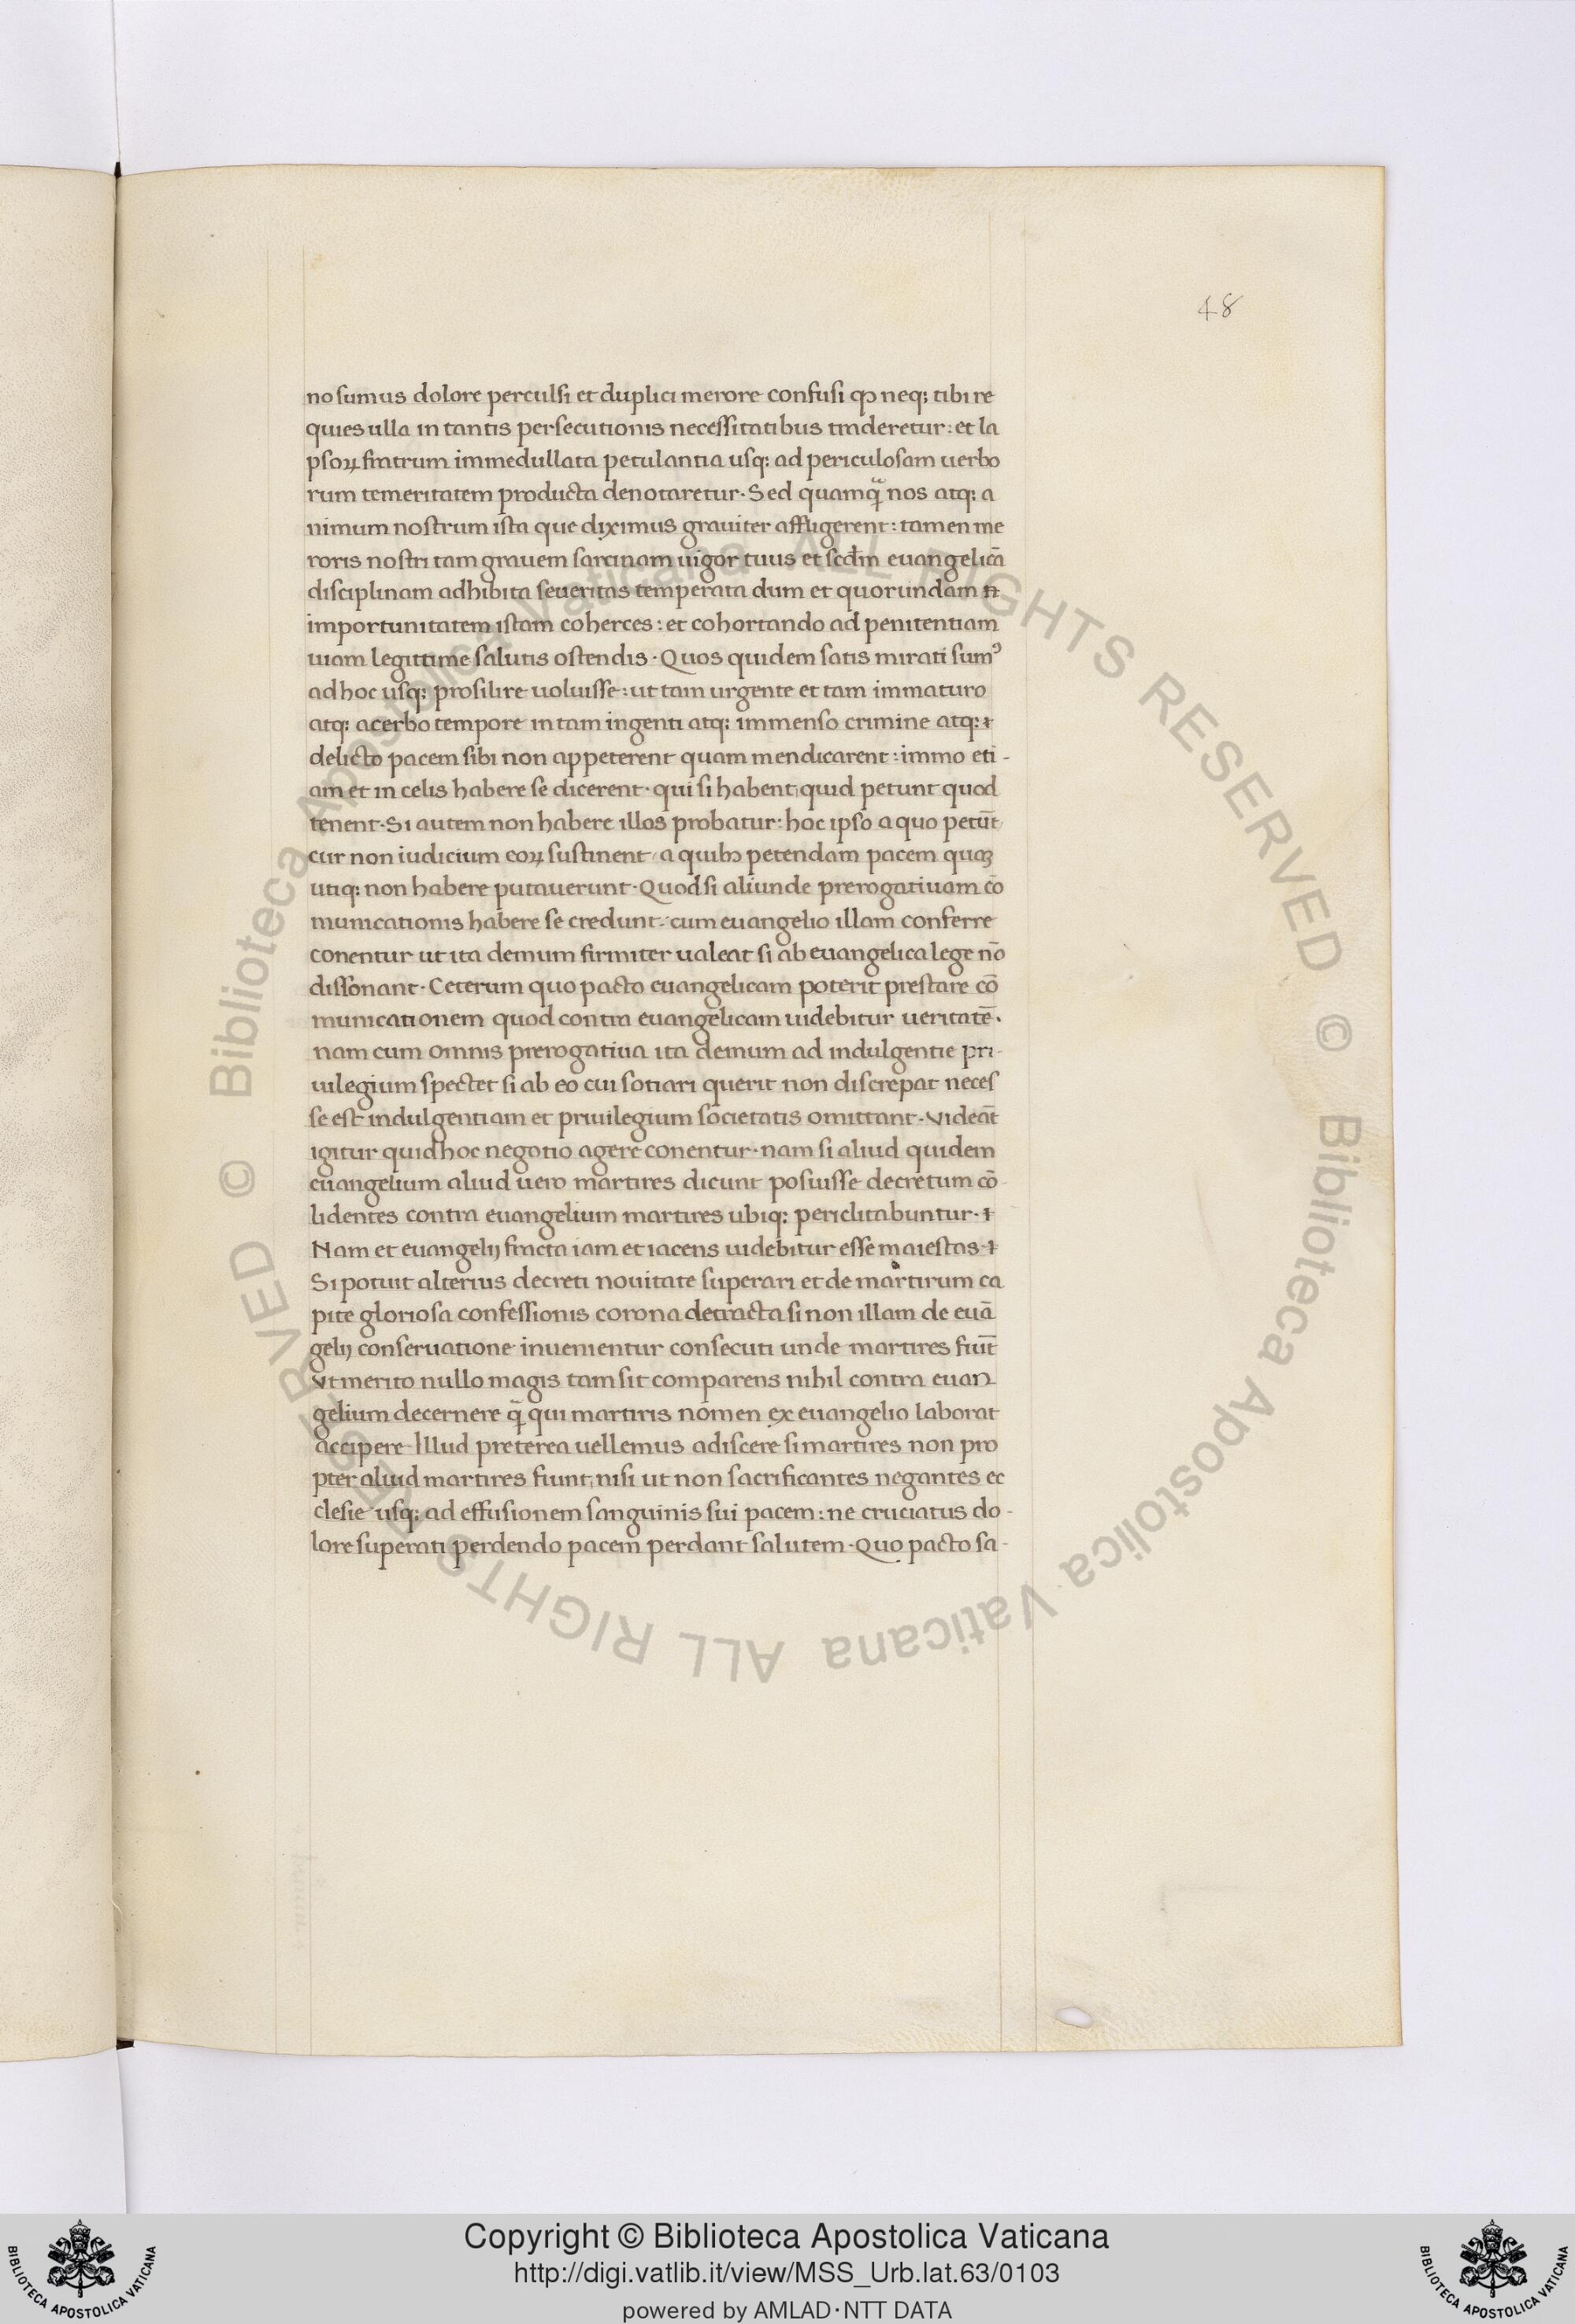 48
no sumus dolore perculsi et duplici merore confusi ꝙ neq; tibi re
quies ulla in tantis persecutionis necessitatibus traderetur: et la
psoꝝ fratrum immedullata petulantia usq; ad periculosam uerbo
rum temeritatem producta denotaretur· Sed quamq̃ nos atq; a
nimum nostrum ista que diximus grauiter affligerent: tamen me
roris nostri tam grauem sarcinam uigor tuus et scd̄m euangelicā
disciplinam adhibita seueritas temperata dum et quorundam
importunitatem istam coherces: et cohortando ad penitentiam
uiam legittime salutis ostendis· Quos quidem satis mirati sumꝰ
ad hoc usq; prosilire uoluisse: ut tam urgente et tam immaturo
atq; acerbo tempore in tam ingenti atq; immenso crimine atq;
delicto pacem sibi non appeterent quam mendicarent: immo eti-
am et in celis habere se dicerent· qui si habent quid petunt quod
tenent· Si autem non habere illos probatur: hoc ipso a quo petūt
cur non iudicium eoꝝ sustinent a quibꝫ petendam pacem quaꝫ
utiq; non habere putauerunt· Quod si aliunde prerogatiuam cō
municationis habere se credunt: cum euangelio illam conferre
conentur ut ita demum firmiter ualeat si ab euangelica lege nō
dissonant· Ceterum quo pacto euangelicam poterit prestare cō
municationem quod contra euangelicam uidebitur ueritatē·
nam cum omnis prerogatiua ita demum ad indulgentie pri-
uilegium spectet si ab eo cui sotiari querit non discrepat neces
se est indulgentiam et priuilegium societatis omittant· Videāt
igitur quid hoc negotio agere conentur· nam si aliud quidem
euangelium aliud uero martires dicunt posuisse decretum cō
lidentes contra euangelium martires ubiq; periclitabuntur·
Nam et euangelij fracta iam et iacens uidebitur esse maiestas·
Si potuit alterius decreti nouitate superari et de martirum ca
pite gloriosa confessionis corona detracta si non illam de euā
gelij conseruatione inuenientur consecuti unde martires fiūt
Vt merito nullo magis tam sit comparens nihil contra euan
gelium decernere q̃ qui martiris nomen ex euangelio laborat
accipere Illud preterea uellemus adiscere si martires non pro
pter aliud martires fiunt nisi ut non sacrificantes negantes ec
clesie usq; ad effusionem sanguinis sui pacem: ne cruciatus do-
lore superati perdendo pacem perdant salutem· Quo pacto sa-
© Biblioteca Apostolica Vaticana ALL RIGHTS RESERVED
© Biblioteca Apostolica Vaticana ALL RIGHTS RESERVED
BIBLIOTECA APOSTOLICA VATICANA
Copyright © Biblioteca Apostolica Vaticana
http://digi.vatlib.it/view/MSS_Urb.lat.63/0103
powered by AMLAD·NTT DATA
BIBLIOTECA APOSTOLICA VATICANA